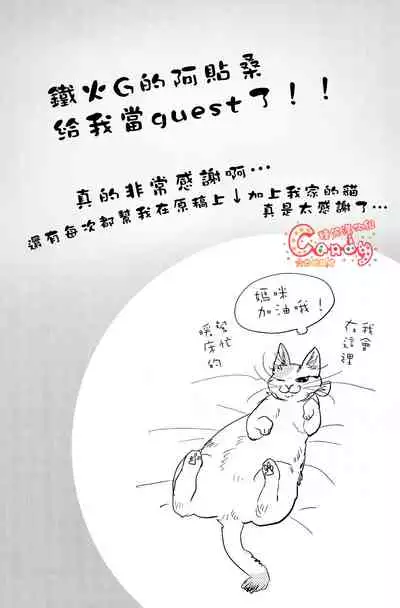 鐵火G的阿貼桑
給我當guest了！！
真的非常感謝啊…
還有每次都幫我在原稿上↓加上我家的貓
真是太感謝了…
Candy
媽咪
加油哦！
我會
在這裡
幫忙
暖床的